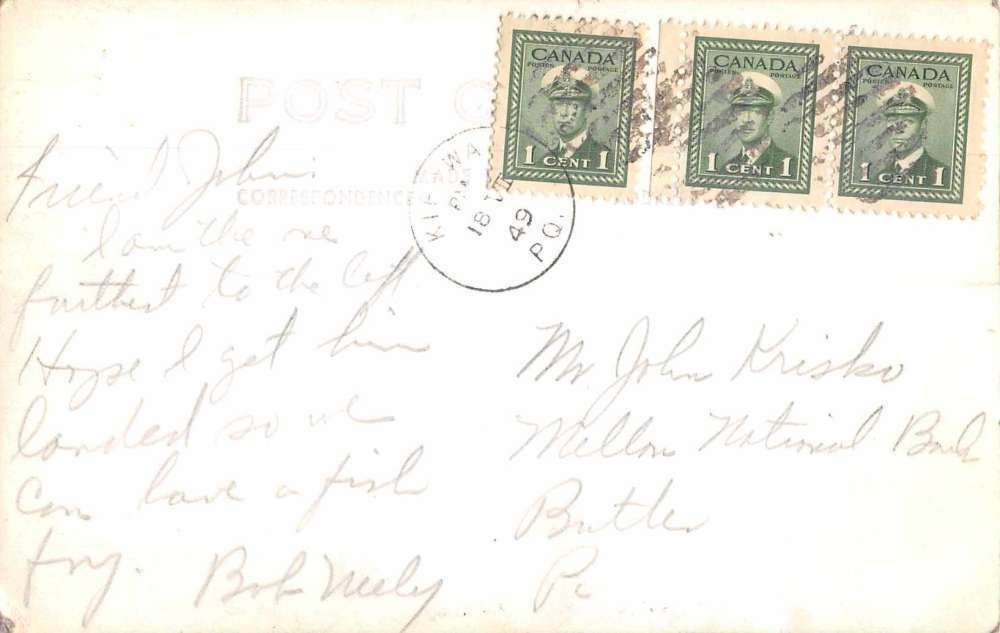 CANADA
POSTES POSTAGE
1 CENT 1
CANADA
POSTES POSTAGE
1 CENT 1
CANADA
POSTES POSTAGE
1 CENT 1
POST
CORRESPONDENCE
MADE
PM
18
49
P.Q.
Friend John:
I am the one
furthest to the left.
Hope I get him
landed so we
can have a fish
fry. Bob Neely
Mr John Krisko
Mellon National Bank
Butler
Pa